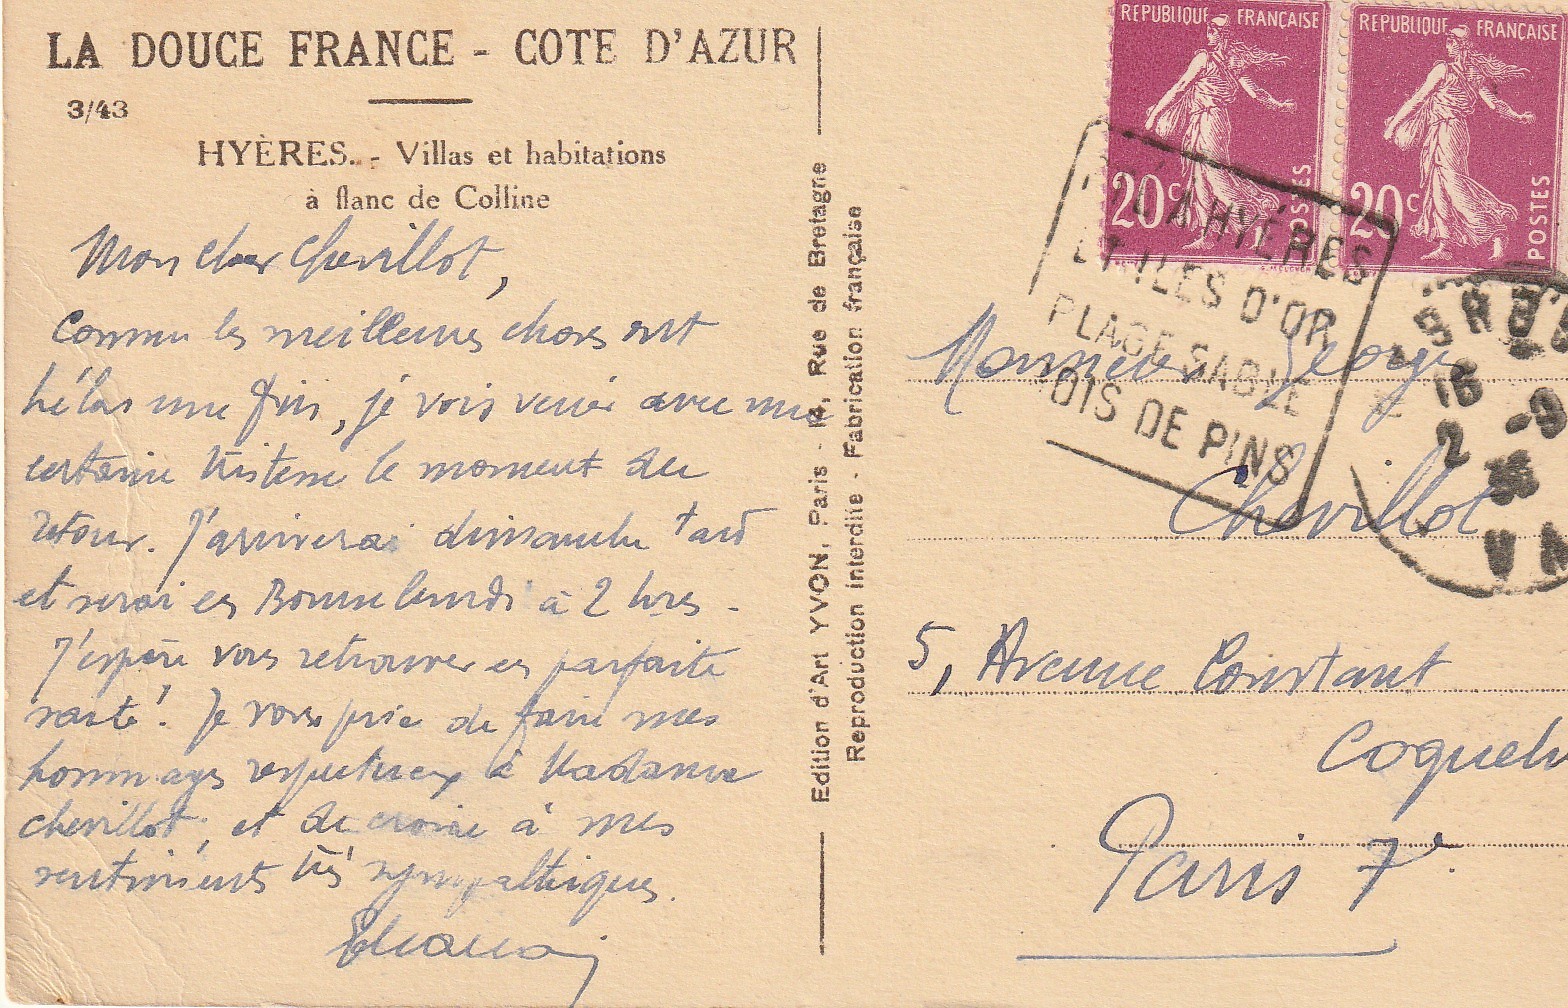 LA DOUCE FRANCE - COTE D'AZUR
3/43
HYÈRES. - Villas et habitations
à flanc de Colline
Mon cher Chevillot,
Comme les meilleures choses ont
hélas une fin, je vois venir avec une
certaine tristesse le moment du
retour. J'arriverai dimanche tard
et serai en Bourse lundi à 2 hres.
J'espère vous retrouver en parfaite
santé! Je vous prie de faire mes
hommages respectueux à Madame
Chevillot, et de croire à mes
sentiments très sympathiques.
Edition d'Art YVON, Paris - 14, Rue de Bretagne
Reproduction interdite - Fabrication française
REPUBLIQUE FRANÇAISE
20c
POSTES
REPUBLIQUE FRANÇAISE
20c
POSTES
A HYÉRES
ET ILES D'OR
PLAGE SABLE
OIS DE PINS
16
-9
2
36
Monsieur George
Chevillot
5, Avenue Constant
Coquelin
Paris 7e